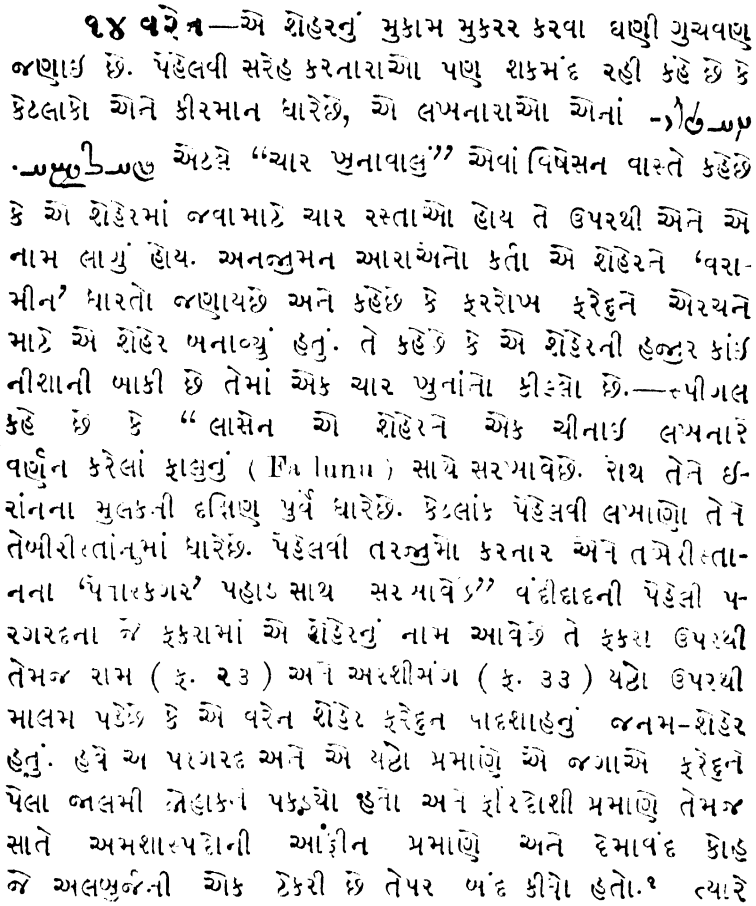 ૧૪ વરેન—એ શેહરનું મુકામ મુકરર કરવા ઘણી ગુચવણ
જણાઇ છે. પેહેલવી સરેહ કરનારાઓ પણ શકમંદ રહી કહે છે કે
કેટલાકો એને કીરમાન ધારેછે, એ લખનારાઓ એનાં
એટલે “ચાર ખુનાવાલું” એવાં વિષેસન વાસ્તે કહેછે
કે એ શેહેરમાં જવામાટે ચાર રસ્તાઓ હોય તે ઉપરથી એને એ
નામ લાગું હોય. અનજીમન આરાઅનો કર્તા એ શેહેરને ‘વરા-
મીન’ ધારતો જણાયછે અને કહેછે કે ફરરોખ ફરેદુને એરચને
માટે એ શેહેર બનાવ્યું હતું. તે કહેછે કે એ શેહેરની હજુર કાંઇ
નીશાની બાકી છે તેમાં એક ચાર ખુનાંનો કીલ્લો છે.—સ્પીગલ
કહે છે કે “લાસેન એ શેહેરને એક ચીનાઇ લખનારે
વર્ણન કરેલાં ફાલુનું ( Fa lunu ) સાથે સરખાવેછે. રાથ તેને ઇ-
રાંનના મુલકની દક્ષિણ પુર્વે ધારેછે. કેટલાંક પેહેલવી લખાણો તેને
તેબીરીસ્તાંનમાં ધારેછે. પેહેલવી તરજુમો કરનાર એને તબેરીસ્તા-
નના પહાડ સાથ સરખાવેછે” વંદીદાદની પેહેલી પ-
રગરદના જે ફકરામાં એ શેહેરનું નામ આવેછે તે ફકરા ઉપરથી
તેમજ રામ ( ફ. ૨૩ ) અને અરશીસંગ ( ફ. ૩૩ ) યષ્ટો ઉપરથી
માલમ પડેછે કે એ વરેન શેહેર ફરેદુન પાદશાહનું જનમ-શેહેર
હતું. હવે અ પરગરદ અને એ યષ્ટો પ્રમાણે એ જગાએ ફરેદુને
પેલા જાલમી જોહાકને પકડ્યો હતો અને ફીરદોશી પ્રમાણે તેમજ
સાતે અમશાસ્પદોની આફ્રીન પ્રમાણે અને દેમાવંદ કોહ
જે અલબુર્જની એક ટેકરી છે તેપર બંદ કીધો હતો.૧ ત્યારે